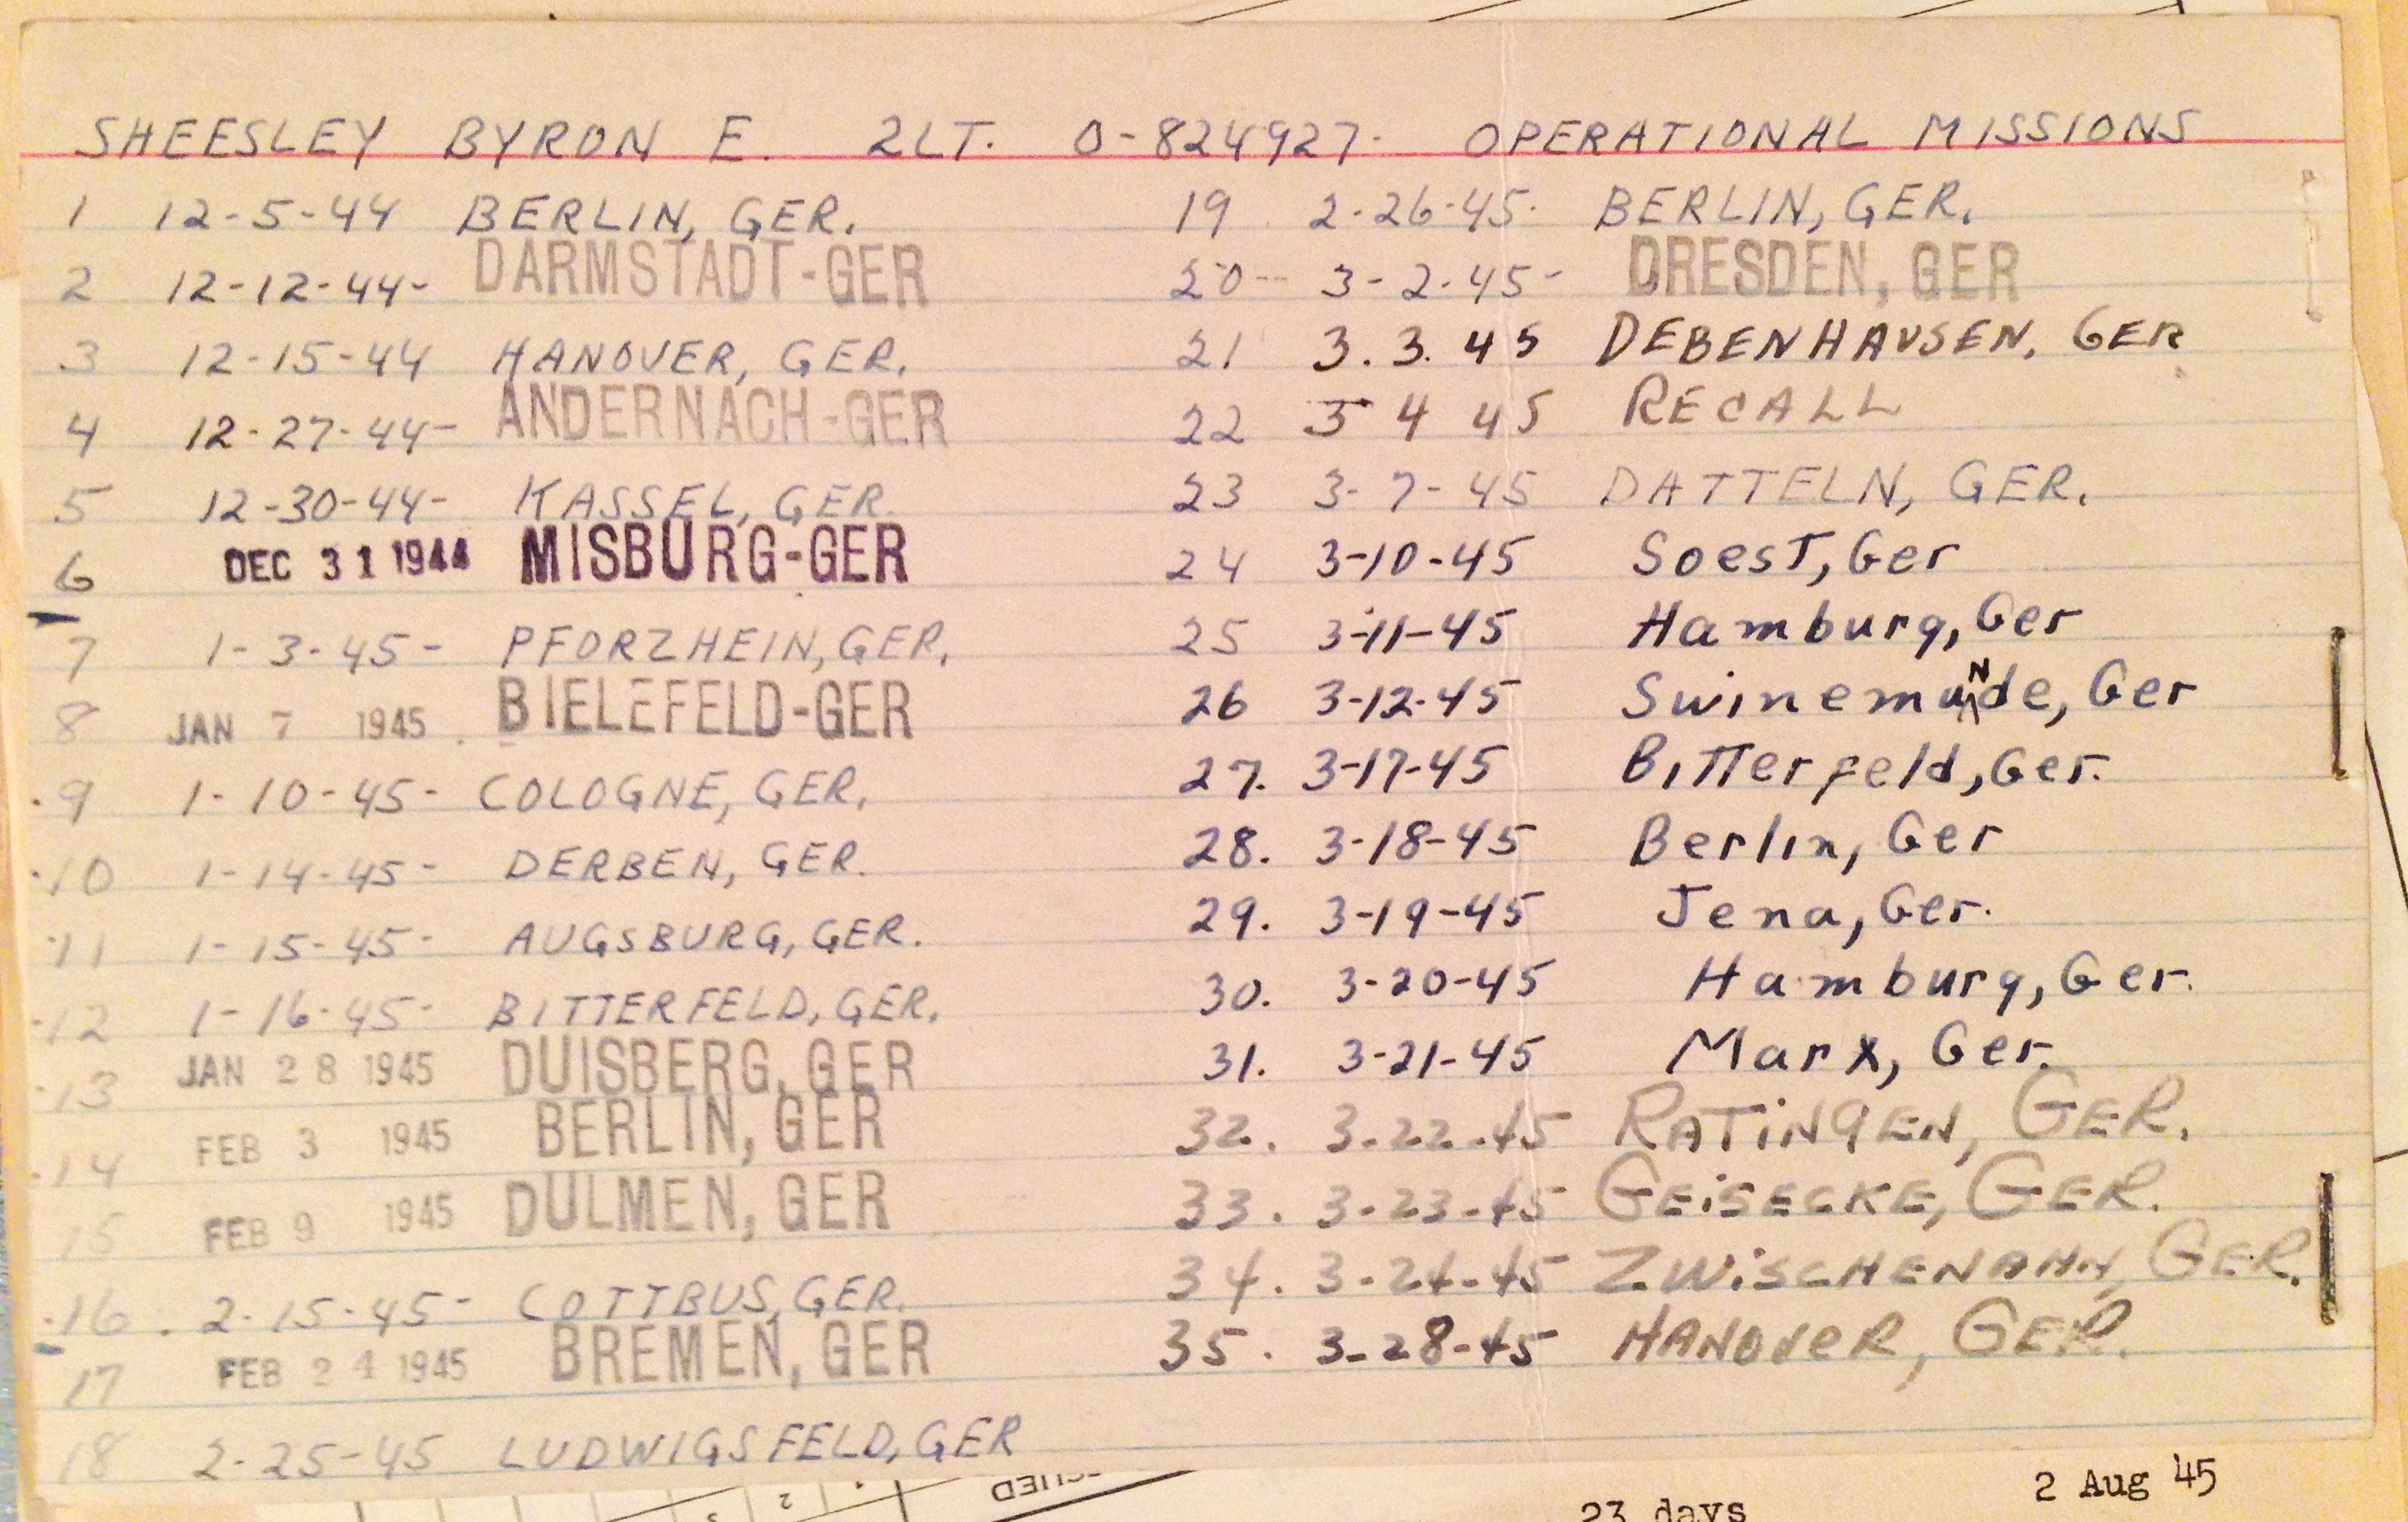 SHEESLEY BYRON E. 2LT. O-824927- OPERATIONAL MISSIONS
1 12-5-44 BERLIN, GER.
2 12-12-44- DARMSTADT-GER
3 12-15-44 HANOVER, GER.
4 12-27-44- ANDERNACH-GER
5 12-30-44- KASSEL, GER.
6 DEC 31 1944 MISBURG-GER
7 1-3-45- PFORZHEIN, GER.
8 JAN 7 1945 BIELEFELD-GER
9 1-10-45- COLOGNE, GER.
10 1-14-45- DERBEN, GER.
11 1-15-45- AUGSBURG, GER.
12 1-16-45- BITTERFELD, GER.
13 JAN 28 1945 DUISBERG, GER
14 FEB 3 1945 BERLIN, GER
15 FEB 9 1945 DULMEN, GER
16. 2-15-45- COTTBUS, GER.
17 FEB 24 1945 BREMEN, GER
18 2-25-45 LUDWIGSFELD, GER
19 2-26-45- BERLIN, GER.
20- 3-2-45- DRESDEN, GER
21 3.3.45 DEBENHAUSEN, GER
22 3 4 45 RECALL
23 3-7-45 DATTELN, GER.
24 3-10-45 Soest, Ger
25 3-11-45 Hamburg, Ger
26 3-12-45 SwinemuNde, Ger
27. 3-17-45 Bitterfeld, Ger.
28. 3-18-45 Berlin, Ger
29. 3-19-45 Jena, Ger.
30. 3-20-45 Hamburg, Ger.
31. 3-21-45 Marx, Ger.
32. 3-22-45 RATINGEN, GER.
33. 3-23-45 GEISECKE, GER.
34. 3-24-45 ZWISCHENAHN, GER.
35. 3-28-45 HANOVER, GER.
2 Aug 45
23 days